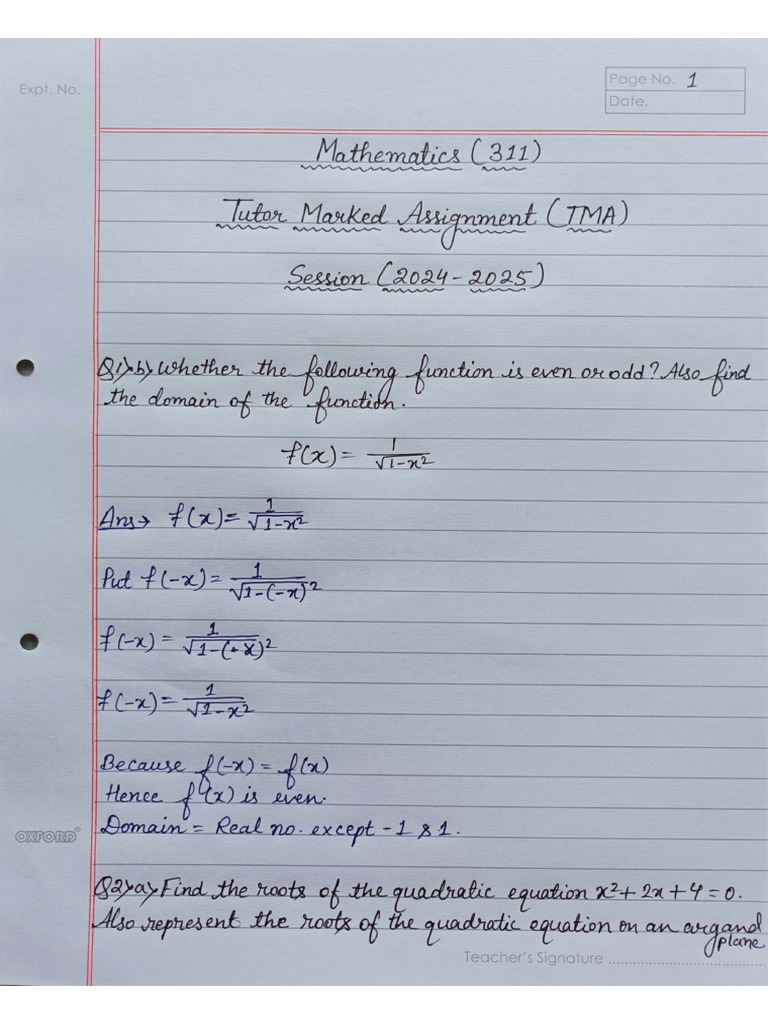 Expt. No.
Page No. 1
Date.
Mathematics (311)
Tutor Marked Assignment (TMA)
Session (2024-2025)
Q1).b) Whether the following function is even or odd? Also find
the domain of the function.
f(x) = 1/√1-x²
Ans→ f(x) = 1/√1-x²
Put f(-x) = 1/√1-(-x)²
f(-x) = 1/√1-(+x)²
f(-x) = 1/√1-x²
Because f(-x) = f(x)
Hence f(x) is even.
Domain = Real no. except -1 & 1.
OXFORD
Q2).a) Find the roots of the quadratic equation x²+2x+4=0.
Also represent the roots of the quadratic equation on an argand
plane
Teacher's Signature